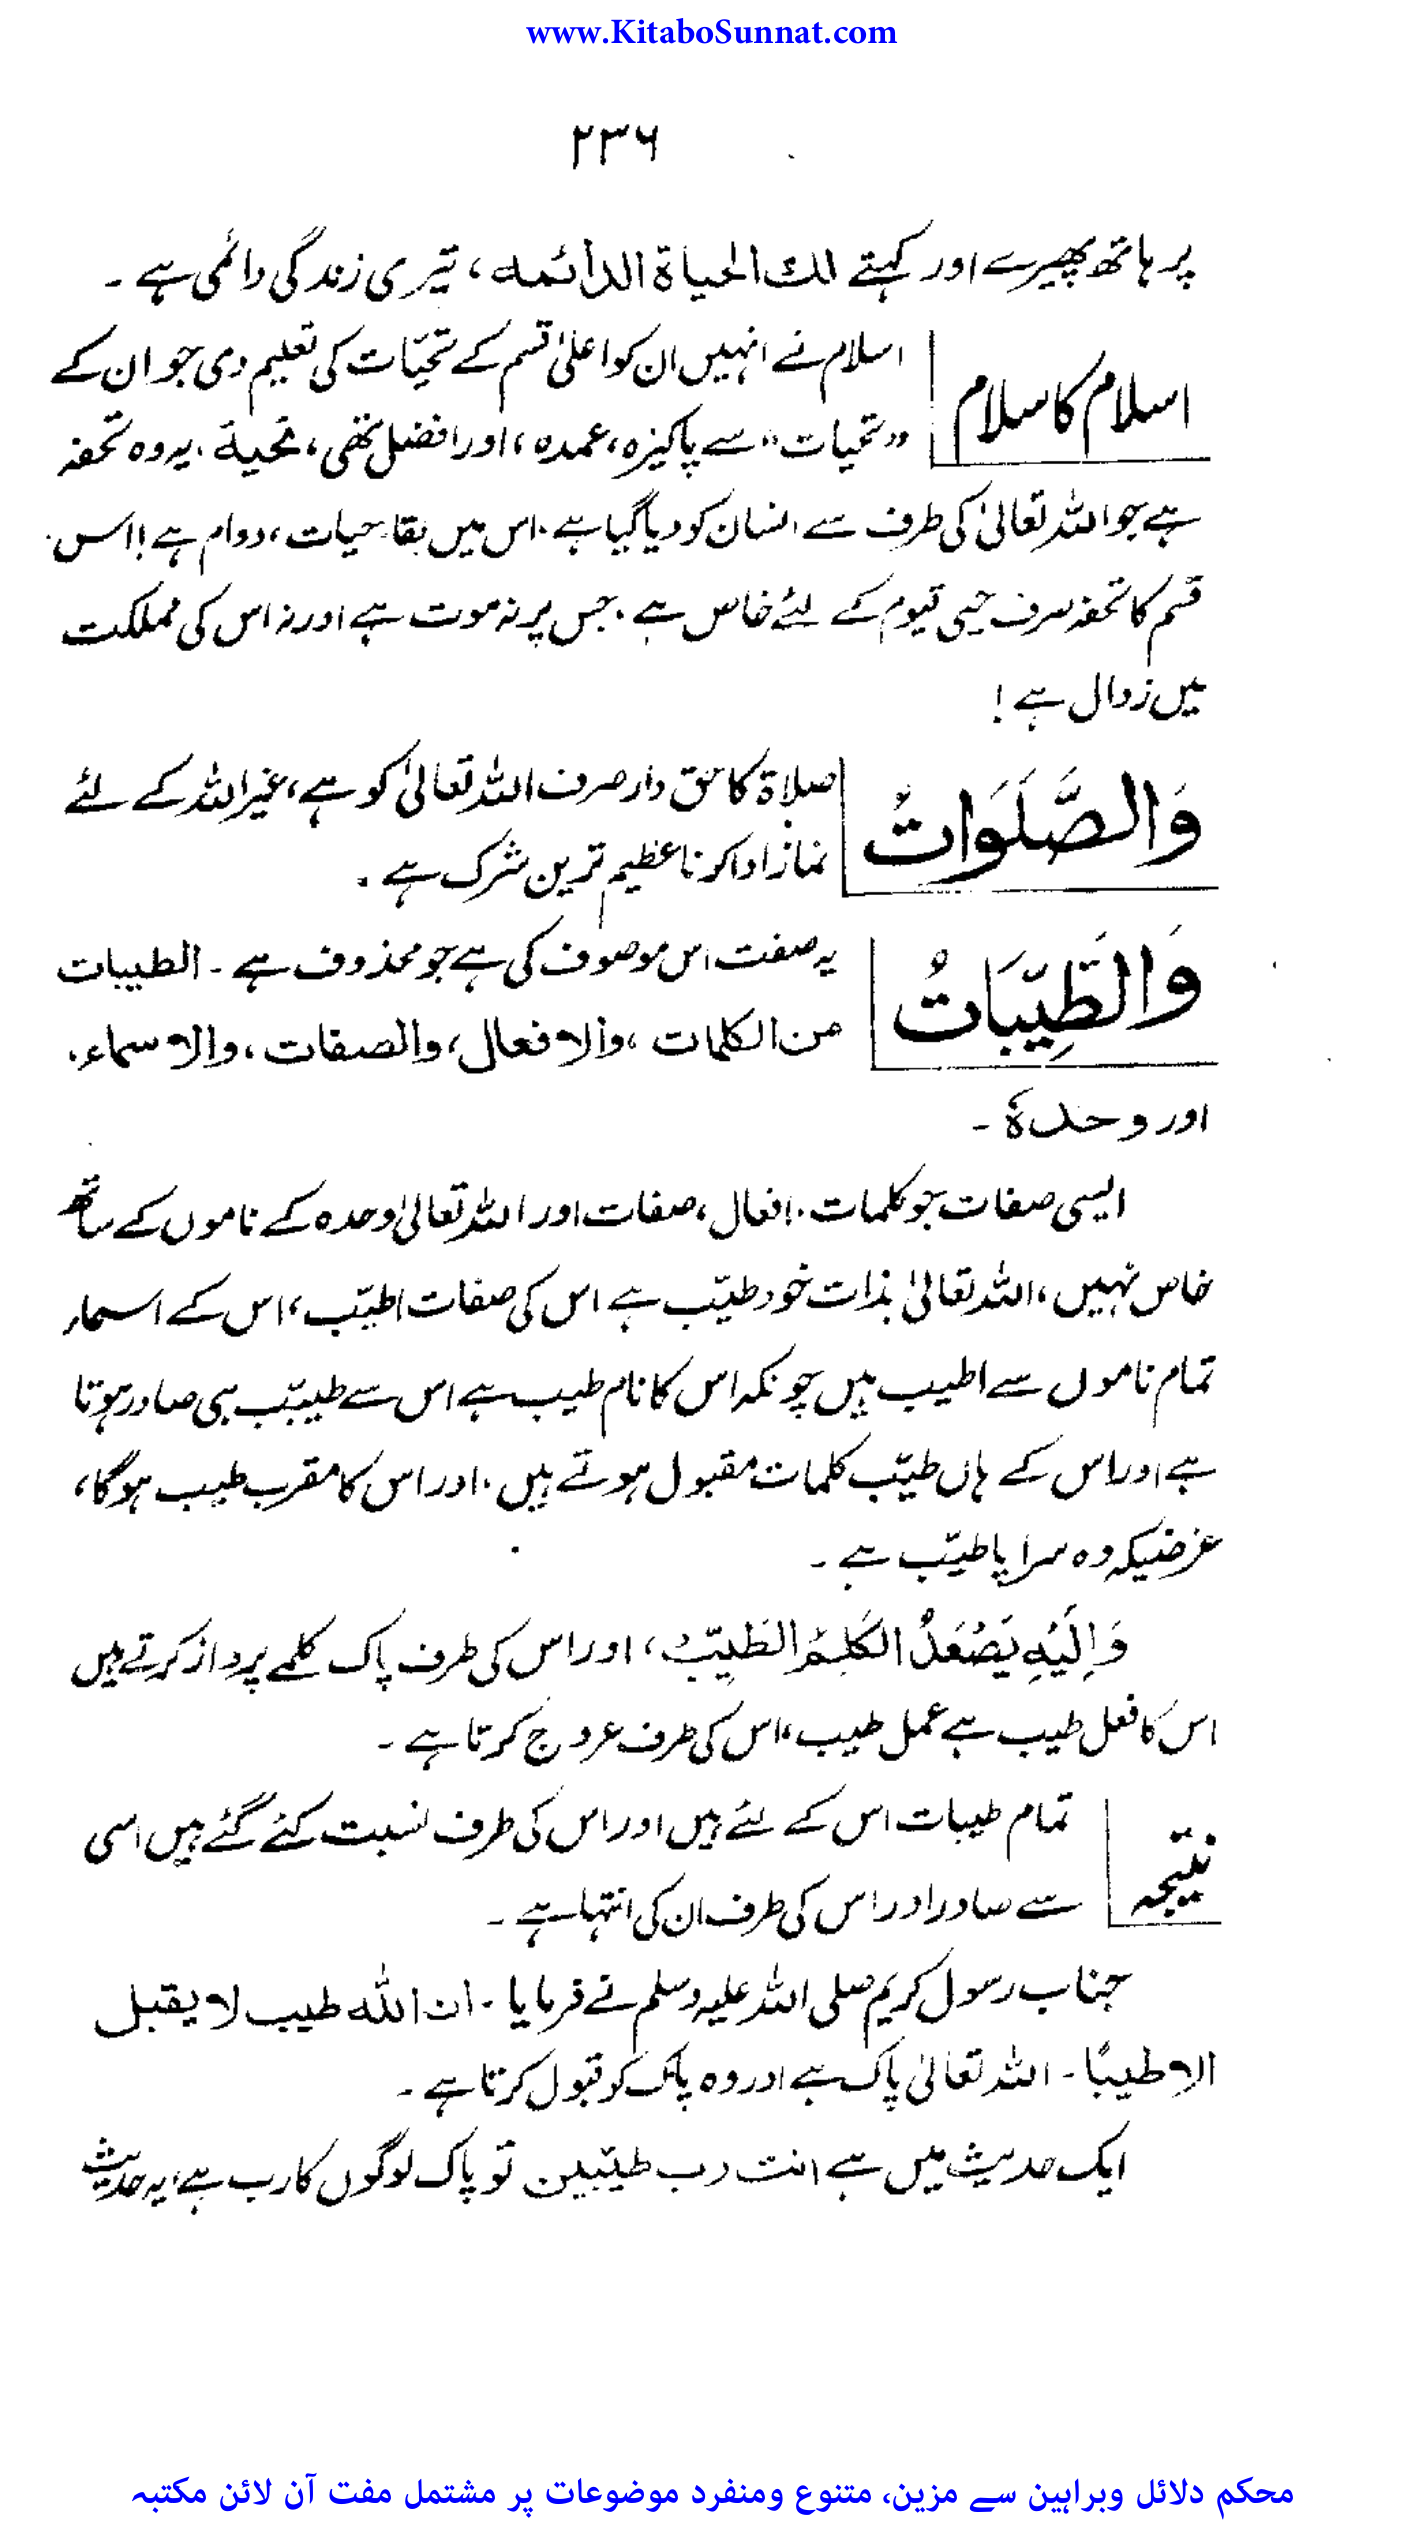 www.KitaboSunnat.com
۲۳۶
پر ہاتھ پھیرے اور کہتے لك الحياة الدائمه، تیری زندگی دائمی ہے ۔
اسلام کا سلام
اسلام نے انہیں ان کو اعلیٰ قسم کے تحیّات کی تعلیم دی جو ان کے
"تحیات" سے پاکیزہ، عمدہ، اور افضل تھی، تحية، یہ وہ تحفہ
ہے جو اللہ تعالیٰ کی طرف سے انسان کو دیا گیا ہے. اس میں بقا، حیات، دوام ہے! اس
قسم کا تحفہ صرف حیی قیوم کے لئے خاص ہے. جس پر نہ موت ہے اور نہ اس کی مملکت
میں زوال ہے!
وَالصَّلَوَاتُ
صلاۃ کا حق دار صرف اللہ تعالیٰ کو ہے، غیر اللہ کے لئے
نماز ادا کرنا عظیم ترین شرک ہے.
وَالطَّيِّبَاتُ
یہ صفت اس موصوف کی ہے جو محذوف ہے ۔ الطيبات
من الكلمات، والافعال، والصفات، والاسماء،
اور وحدہٗ ۔
ایسی صفات جو کلمات، افعال، صفات اور اللہ تعالیٰ وحدہ کے ناموں کے ساتھ
خاص نہیں، اللہ تعالیٰ بذات خود طیّب ہے اس کی صفات اطیّب، اس کے اسمار
تمام ناموں سے اطیب ہیں چونکہ اس کا نام طیب ہے اس سے طیّب ہی صادر ہوتا
ہے اور اس کے ہاں طیّب کلمات مقبول ہوتے ہیں. اور اس کا مقرب طیب ہوگا،
غرضیکہ وہ سراپا طیّب ہے ۔
وَإِلَيْهِ يَصْعَدُ الكَلِمُ الطَيِّبُ، اور اس کی طرف پاک کلمے پرواز کرتے ہیں
اس کا فعل طیب ہے عمل طیب، اس کی طرف عروج کرتا ہے ۔
نتیجہ
تمام طیبات اس کے لئے ہیں اور اس کی طرف نسبت کئے گئے ہیں اسی
سے صادر اور اس کی طرف ان کی انتہا ہے ۔
جناب رسول کریم صلی اللہ علیہ وسلم نے فرمایا ۔ ان الله طيب لا يقبل
الا طيبًا ۔ اللہ تعالیٰ پاک ہے اور وہ پاک کو قبول کرتا ہے ۔
ایک حدیث میں ہے انت رب طيّبين تو پاک لوگوں کا رب ہے، یہ حدیث
محکم دلائل وبراہین سے مزین، متنوع ومنفرد موضوعات پر مشتمل مفت آن لائن مکتبہ